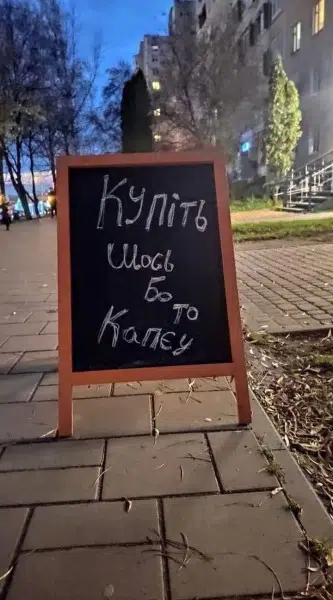 Купіть
щось
бо
то
капєц